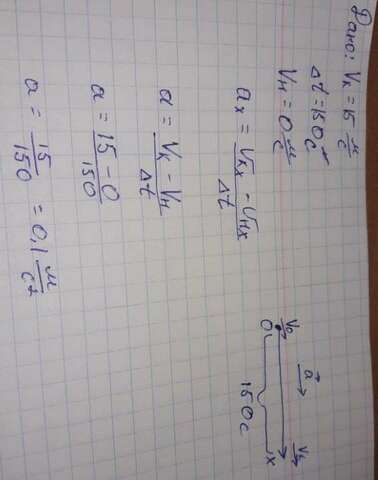 Дано: Vк = 15 м/с
Δt = 150 с
Vн = 0 м/с
aₓ = (Vкx − Vнx)/Δt
a = (Vк − Vн)/Δt
a = (15 − 0)/150
a = 15/150 = 0,1 м/с²
V₀ a Vк
0 x
150 с